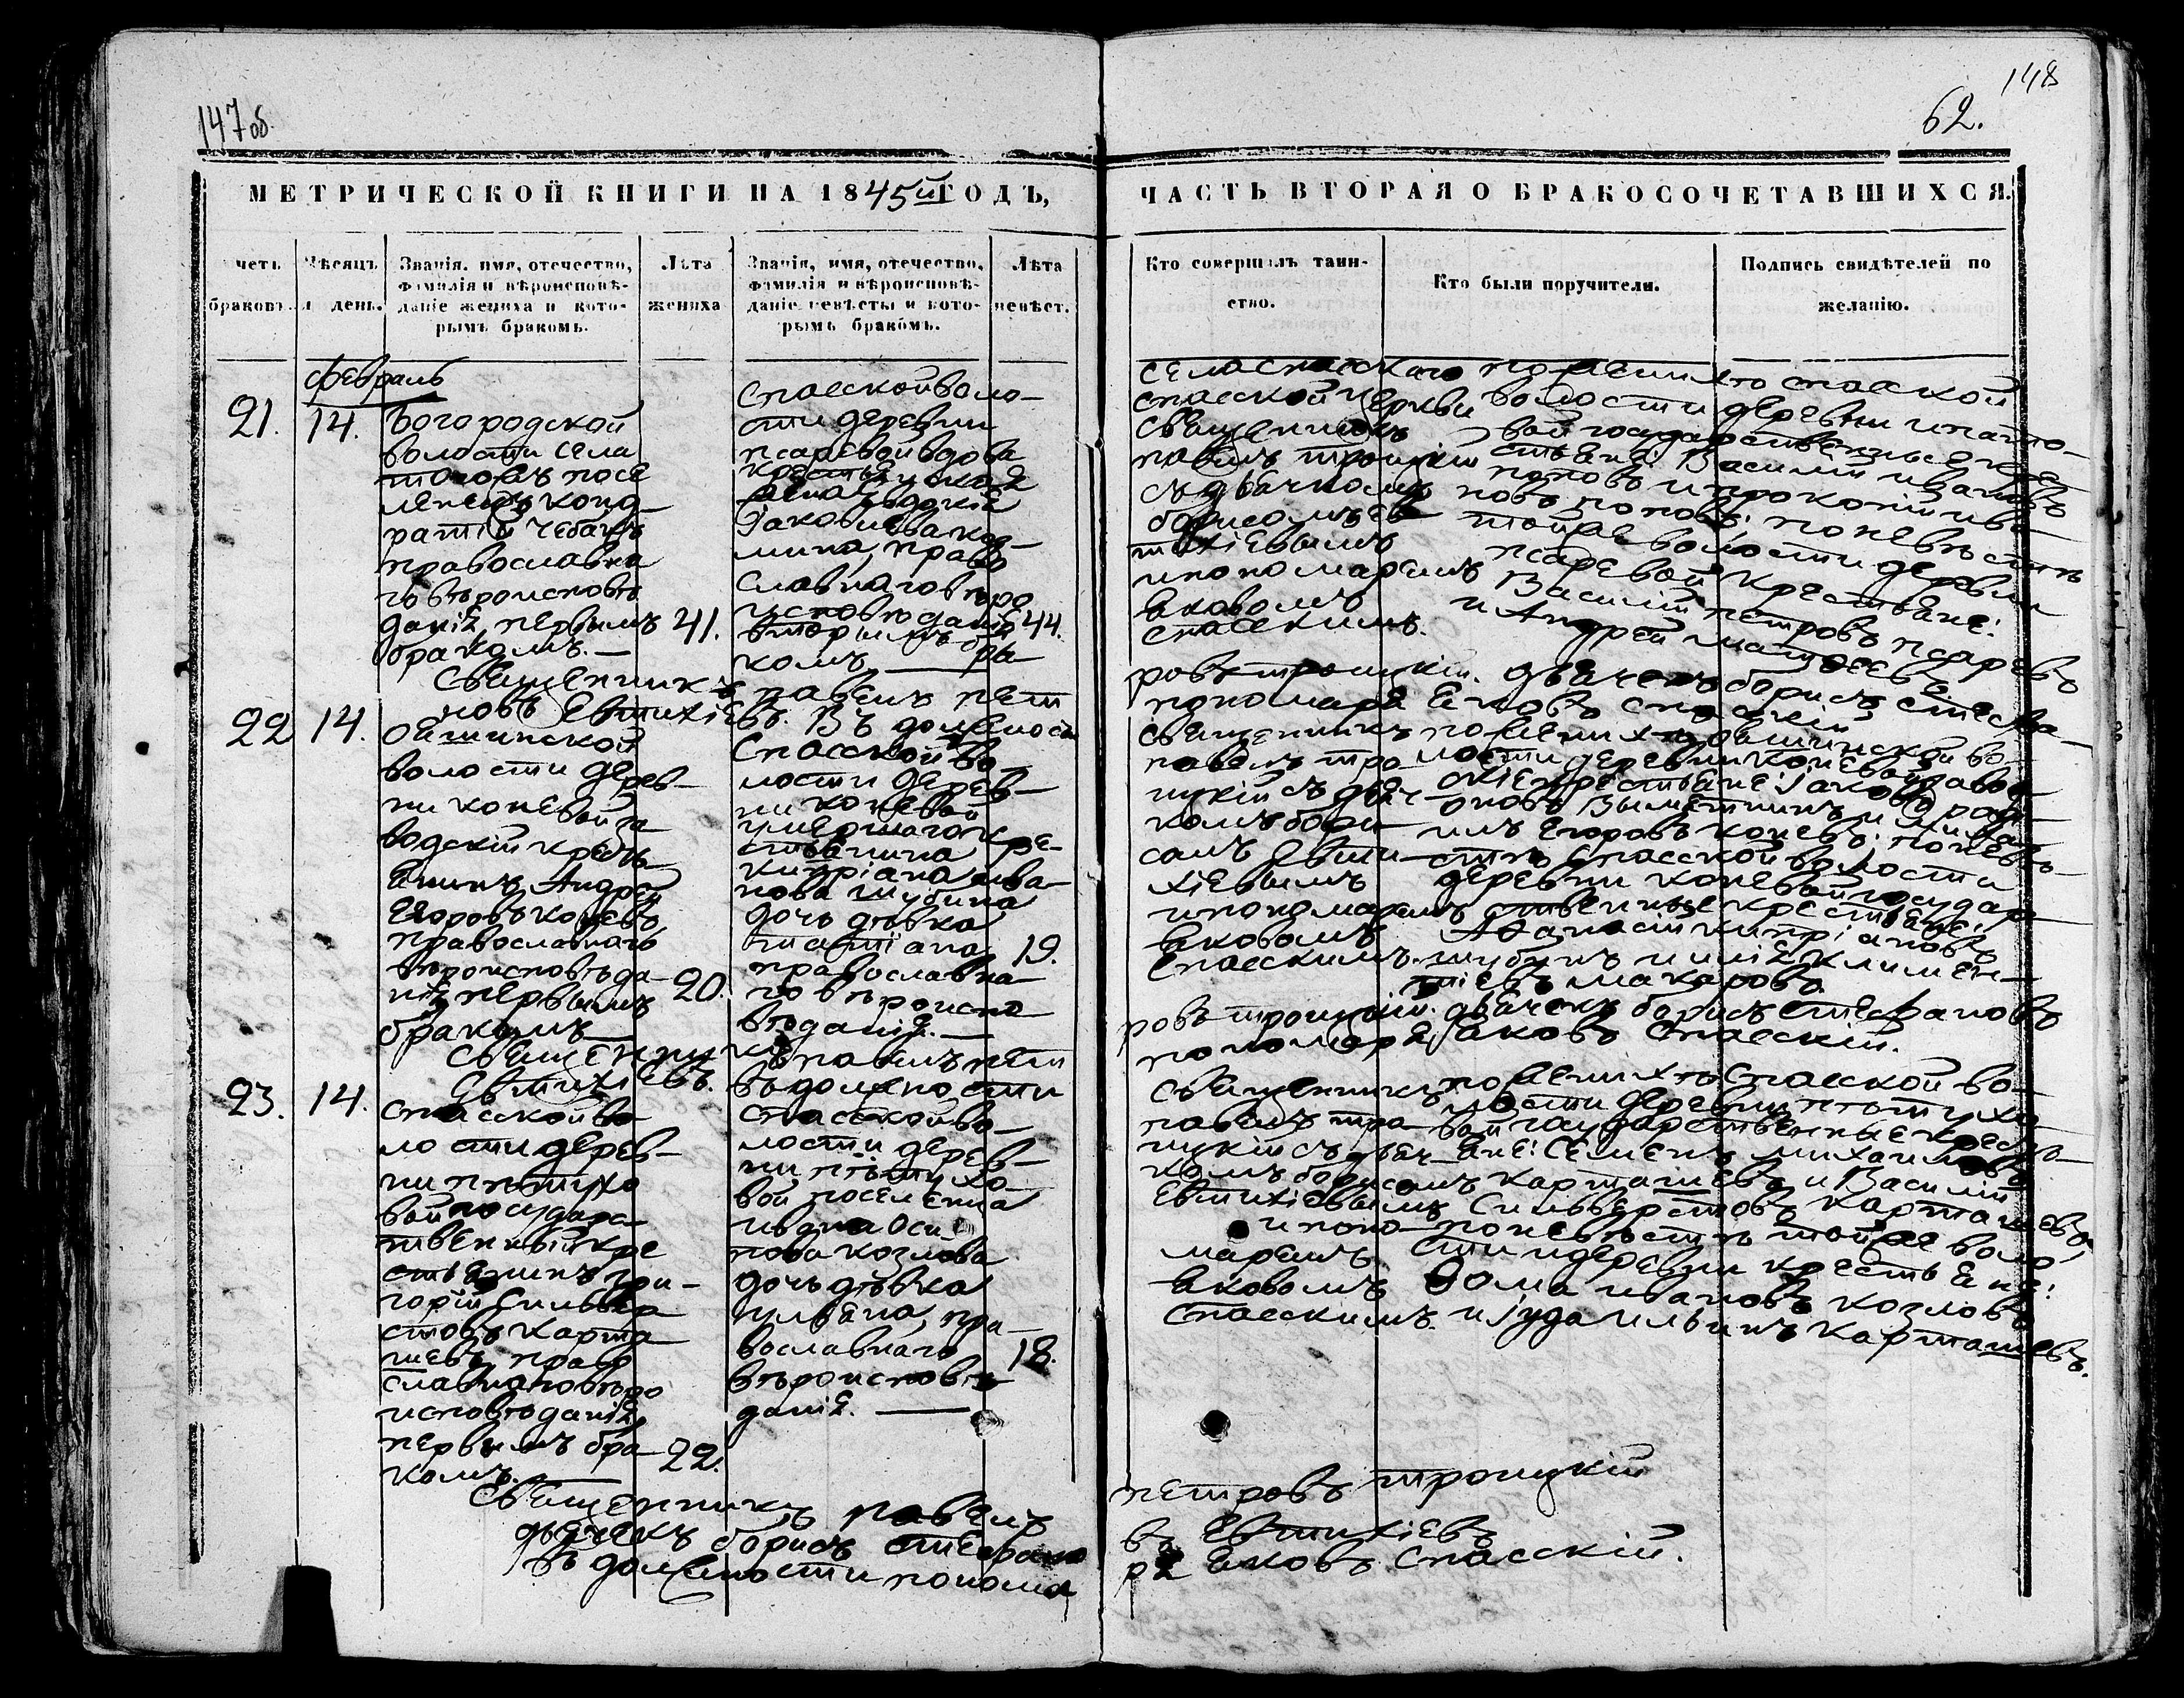 147 об.
148
62.
МЕТРИЧЕСКОЙ КНИГИ НА 1845й ГОДЪ,
ЧАСТЬ ВТОРАЯ О БРАКОСОЧЕТАВШИХСЯ.
счетъ
браковъ.
Мѣсяцъ
и день.
Званія, имя, отечество,
фамилія и вѣроисповѣ-
даніе жениха и кото-
рымъ бракомъ.
Лѣта
жениха
Званія, имя, отечество,
фамилія и вѣроисповѣ-
даніе невѣсты и кото-
рымъ бракомъ.
Лѣта
невѣст.
Кто совершалъ таин-
ство.
Кто были поручители.
Подпись свидѣтелей по
желанію.
февраль
21.
14.
Богородской
волости села
посе
ленецъ конд-
ратій Чебанъ
православна
го вѣроисповѣ
данія, первымъ
бракомъ.—
41.
Спасской воло-
сти деревни
псаревой вдова
крестьянская
Яковлева
мина, право
славнаго вѣро
исповѣданія
вторымъ бра
комъ —
44.
села спасскаго
спасской церкви
священникъ
павелъ троицкій
съ дьячкомъ
борисомъ ев
тихіевымъ
и пономаремъ
яковомъ
спасскимъ.
по женихѣ спасской
волости деревни игнато-
вой государственные кре
стьяне: Василій ивановъ
поповъ и прокопій ива
новъ поповъ; по невѣстѣ
той же волости деревни
псаревой крестьяне:
Василій петровъ псаревъ
и Андрей матѳеевъ
Священникъ павелъ пет
ровъ троицкій. дьячекъ борисъ стефа-
новъ Евтихіевъ. Въ должности
пономаря Яковъ спасскій
22
14.
волости дерев-
ни коневой за
водскій кресть-
янинъ Андрей
Егоровъ коневъ
православнаго
вѣроисповѣда-
нія первымъ
бракомъ —
20.
Спасской во-
лости дерев-
ни коневой
умершаго кре-
стьянина
кипріана ива-
нова шубина
дочь дѣвка
татіана
православна
го вѣроиспо
вѣданія. —
19.
священникъ
павелъ тро
ицкій съ дьяч-
комъ бори-
сомъ Евти-
хіевымъ
и пономаремъ
яковомъ
спасскимъ.
Егоровъ коневъ; по невѣ-
стѣ Спасской волости
деревни коневой государ
ственные крестьяне:
Аѳанасій кипріановъ
шубинъ и илія климен-
тіевъ макаровъ
Священникъ павелъ пет
ровъ троицкій. дьячекъ борисъ стефановъ
Евтихіевъ. въ должности
пономаря Яковъ Спасскій.
23.
14.
Спасской во
лости дерев-
ни пѣтухо
вой государс-
твенный кре
стьянинъ гри-
горій Сильве
стовъ карта
шевъ, право
славнаго вѣро
исповѣданія,
первымъ бра-
комъ. —
22.
Спасской во-
лости дерев-
ни пѣтухо-
вой поселенца
ивана Оси
пова козлова
дочь дѣвка
ульяна, пра-
вославнаго
вѣроисповѣ-
данія. —
18.
священникъ
павелъ тро
ицкій съ дьяч-
комъ борисомъ
Евтихіевымъ
и поно-
маремъ
яковомъ
спасскимъ.
по женихѣ спасской во-
лости деревни пѣтухо
вой государственные кресть-
яне: Семенъ михаиловъ
карташевъ и Василій
Сильверстовъ карташевъ,
по невѣстѣ той же воло
сти и деревни крестьяне:
Ѳома ивановъ козловъ
и Іуда ильинъ карташевъ.
Священникъ павелъ
петровъ троицкій
дьячекъ борисъ стефано
въ Евтихіевъ
въ должности понома
ря Яковъ Спасскій.